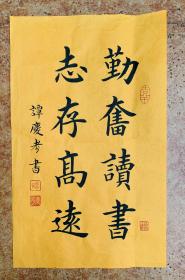 勤奮讀書
志存高遠
譚慶考書